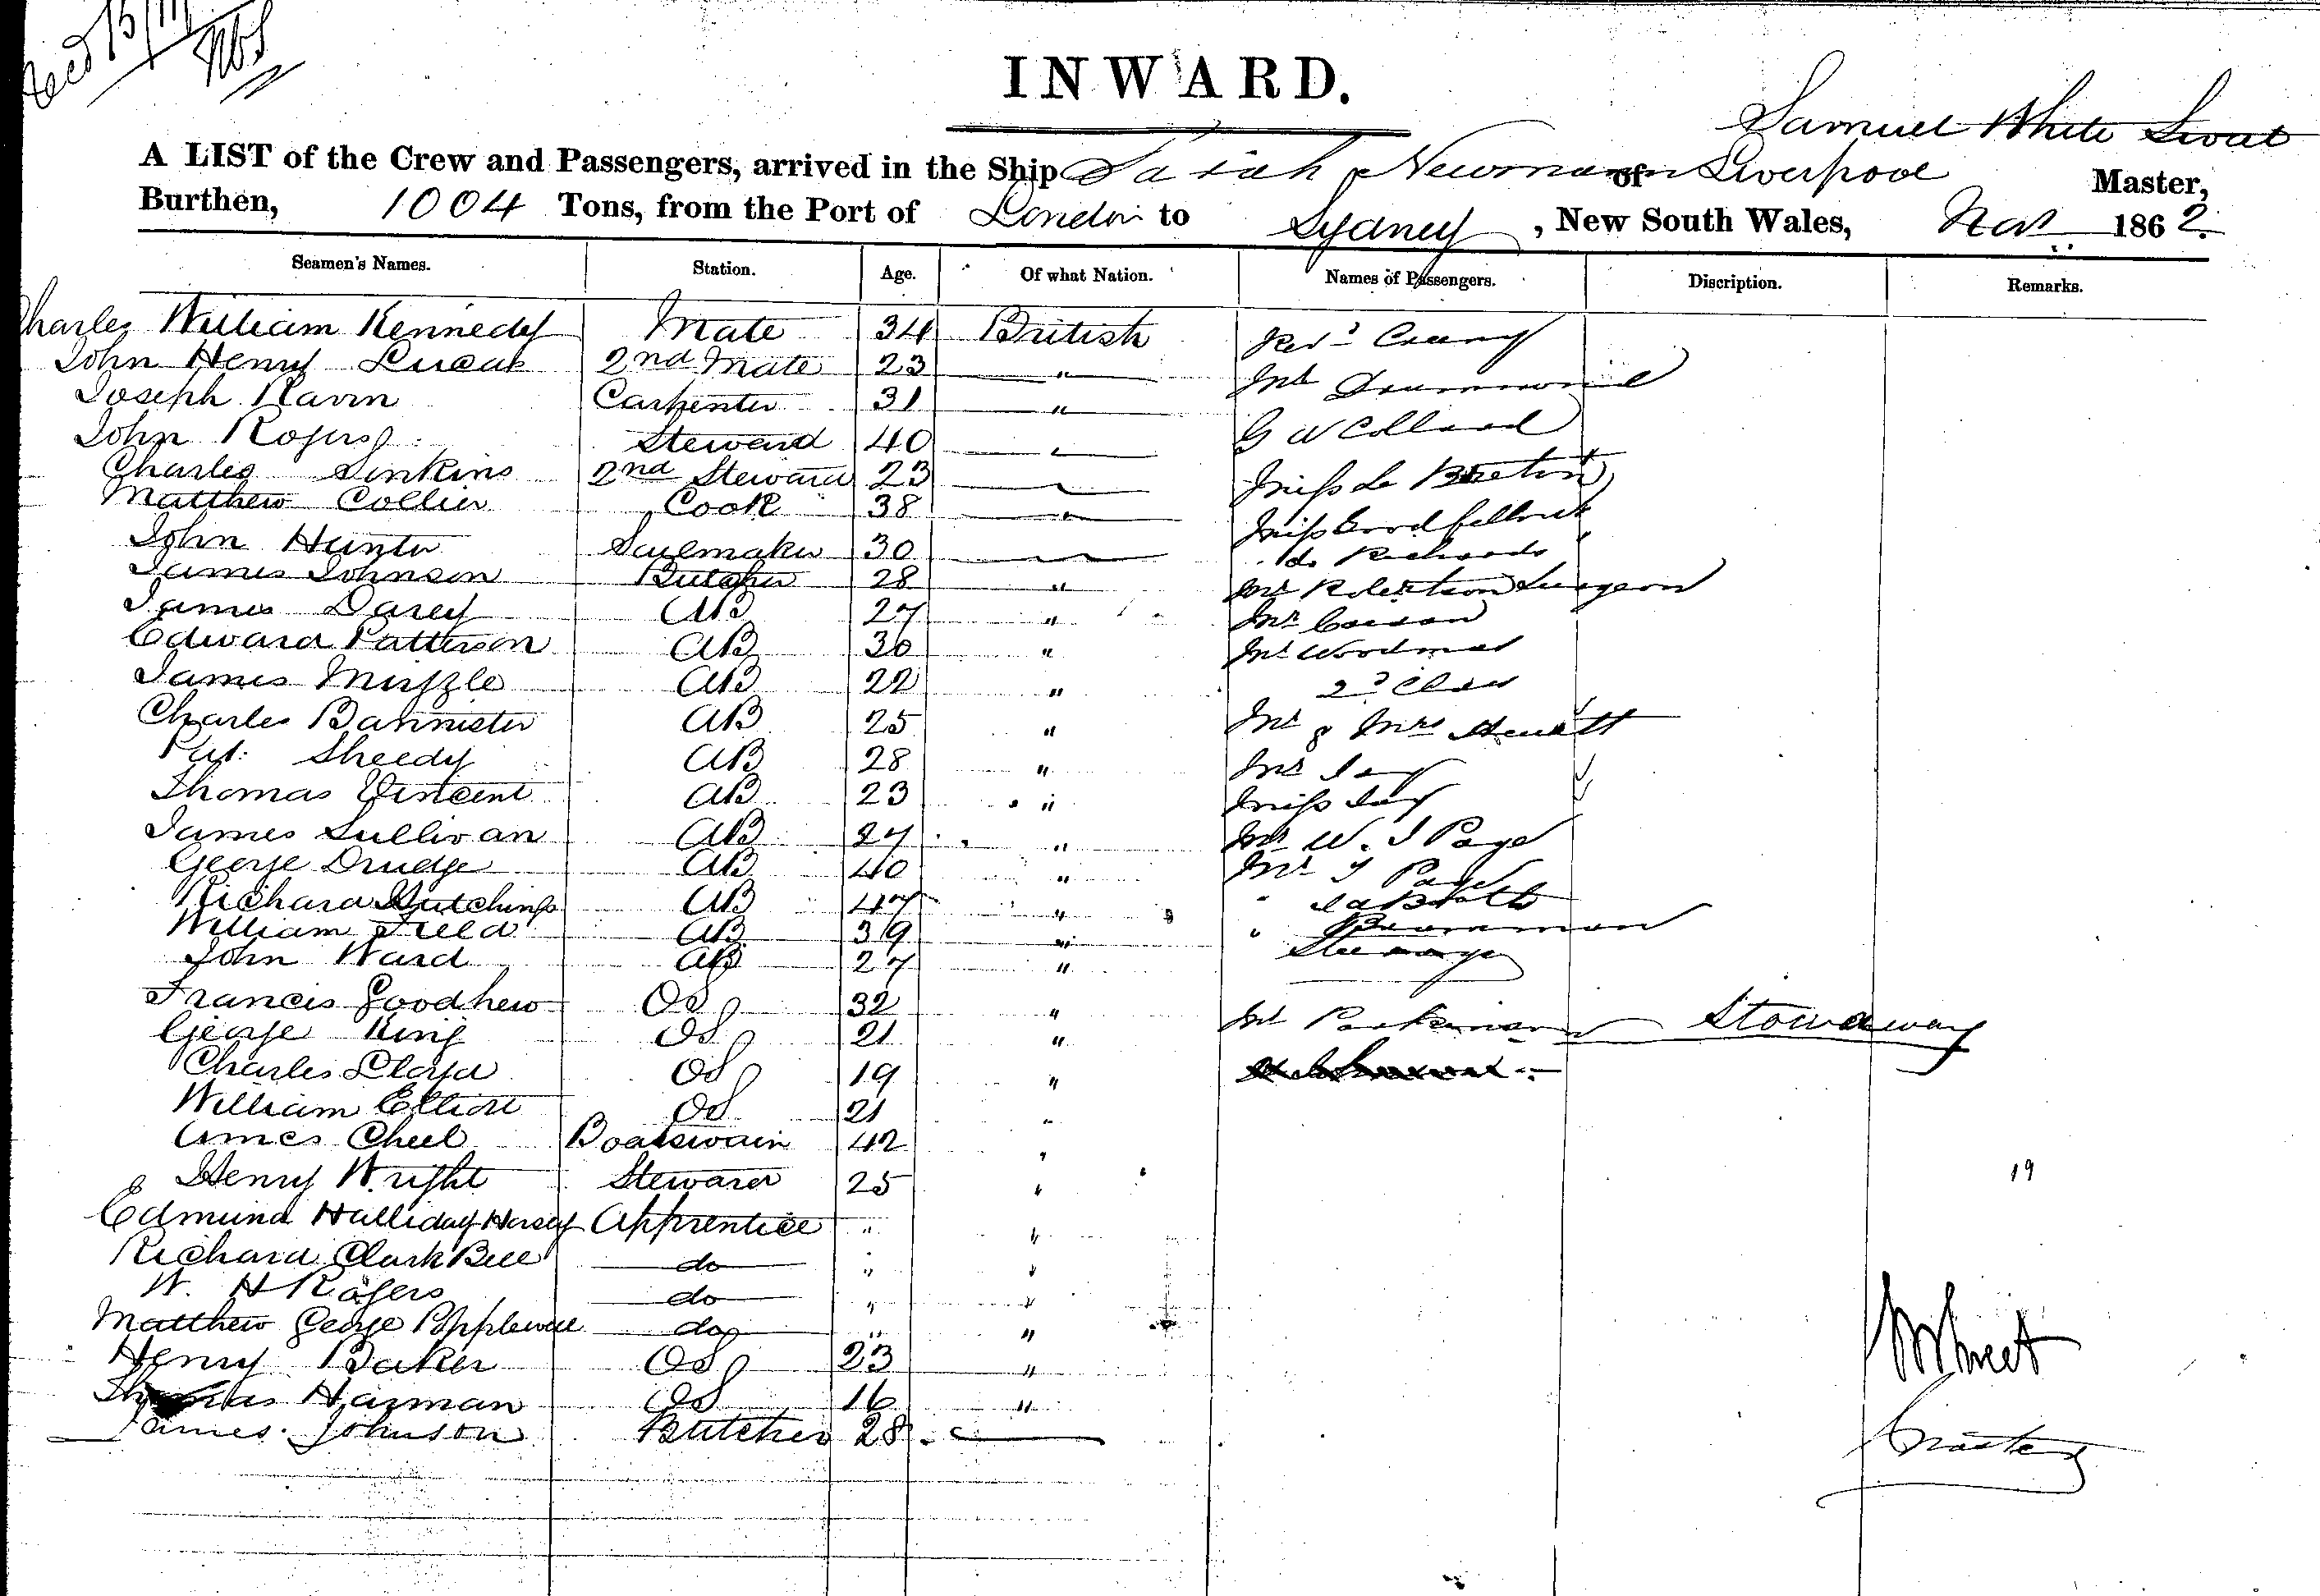 INWARD.
Samuel White
A LIST of the Crew and Passengers, arrived in the Ship Sarah Newman of Liverpool Master,
Burthen, 1004 Tons, from the Port of London to Sydney, New South Wales, Nov 1862.
Seamen's Names. Station. Age. Of what Nation. Names of Passengers. Discription. Remarks.
Charles William Kennedy Mate 34 British Revd
John Henry Lucas 2nd Mate 23 " Mr Drummond
Joseph Ravin Carpenter 31 " G W Collard
John Rogers Steward 40 "
Charles Sinkins 2nd Steward 23 " Miss Le Breton
Matthew Collier Cook 38 " Miss Goodfellow
John Hunter Sailmaker 30 " do Richards
James Johnson Butcher 28 " Mr Robertson Surgeon
James Darcy AB 27 " Mr
Edward Patterson AB 30 " Mr Woodman
James AB 22 " 2d Class
Charles Bannister AB 25 " Mr & Mrs Hewett
Pat: Sheedy AB 28 " Mr
Thomas Vincent AB 23 " Miss
James Sullivan AB 27 " Mr W. J Page
George Drudge AB 40 " Mr J Page
Richard Hutchings AB 47 " "
William Field AB 39 " "
John Ward AB 27 " Steerage
Francis Goodhew OS 32 "
George King OS 21 " Mr Parkinson Stowaway
Charles Lloyd OS 19 "
William Elliott OS 21 "
James Cheel Boatswain 42 "
Henry Wright Steward 25 " 19
Edmund Halliday Hersey Apprentice " "
Richard Clark Bell do " "
W. H Rogers do " "
Matthew George Popplewell do " "
Henry Baker OS 23 "
Thomas Harman OS 16 "
James Johnson Butcher 28
Master